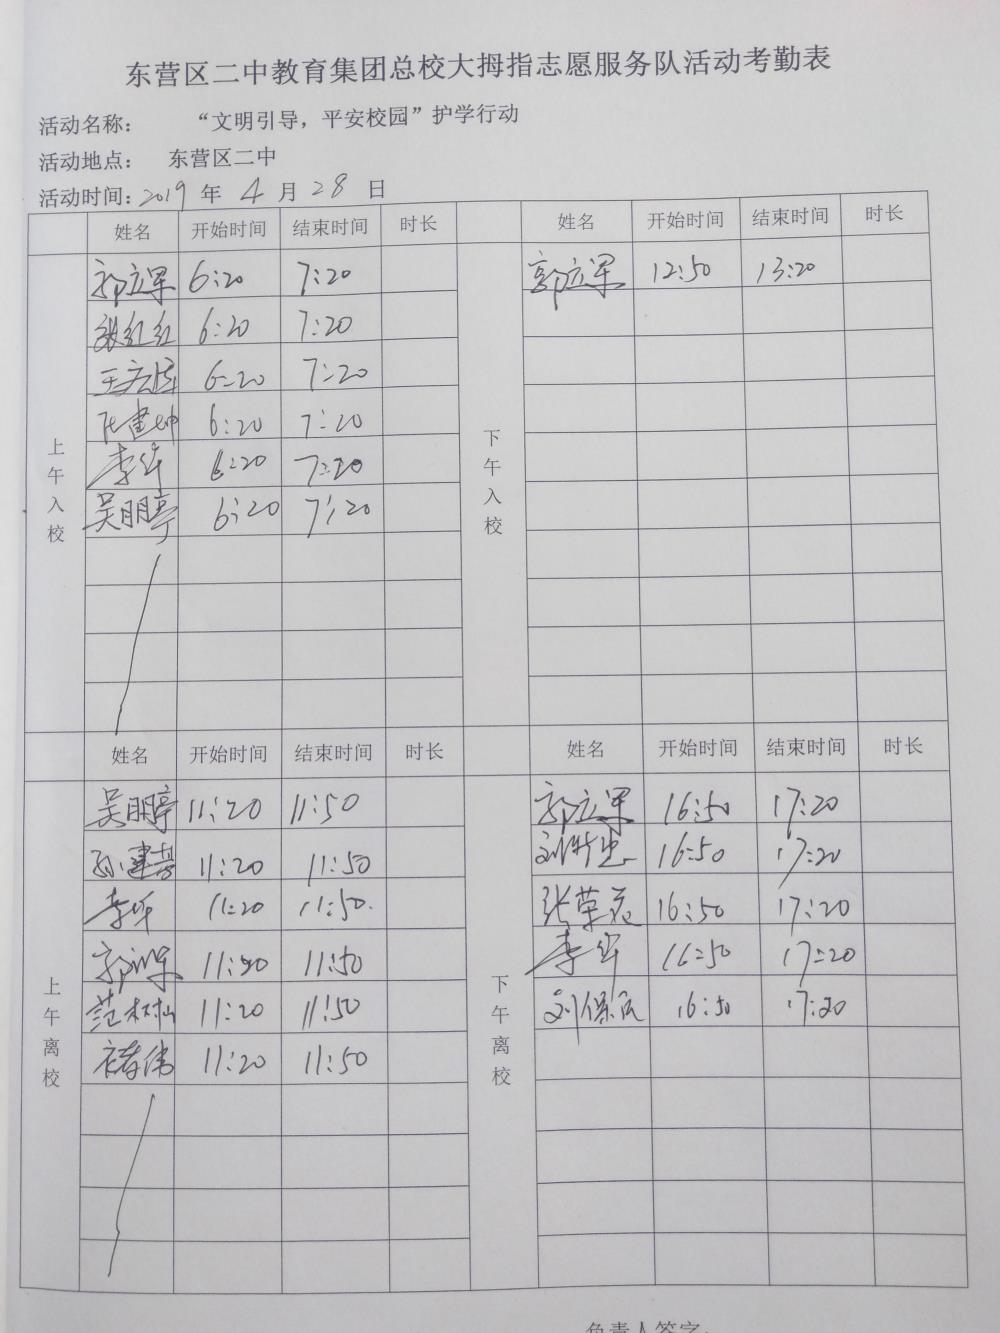 东营区二中教育集团总校大拇指志愿服务队活动考勤表
活动名称： “文明引导，平安校园”护学行动
活动地点： 东营区二中
活动时间：2019 年 4 月 28 日
姓名 开始时间 结束时间 时长 姓名 开始时间 结束时间 时长
上午入校
郭立军 6:20 7:20
张红红 6:20 7:20
王 6:20 7:20
张建坤 6:20 7:20
李华 6:20 7:20
吴明亭 6:20 7:20
下午入校
郭立军 12:50 13:20
姓名 开始时间 结束时间 时长 姓名 开始时间 结束时间 时长
上午离校
吴明亭 11:20 11:50
孙建芳 11:20 11:50
李华 11:20 11:50
郭立军 11:20 11:50
范树山 11:20 11:50
伟 11:20 11:50
下午离校
郭立军 16:50 17:20
刘 16:50 17:20
张荣花 16:50 17:20
李华 16:50 17:20
刘保 16:50 17:20
负责人签字：